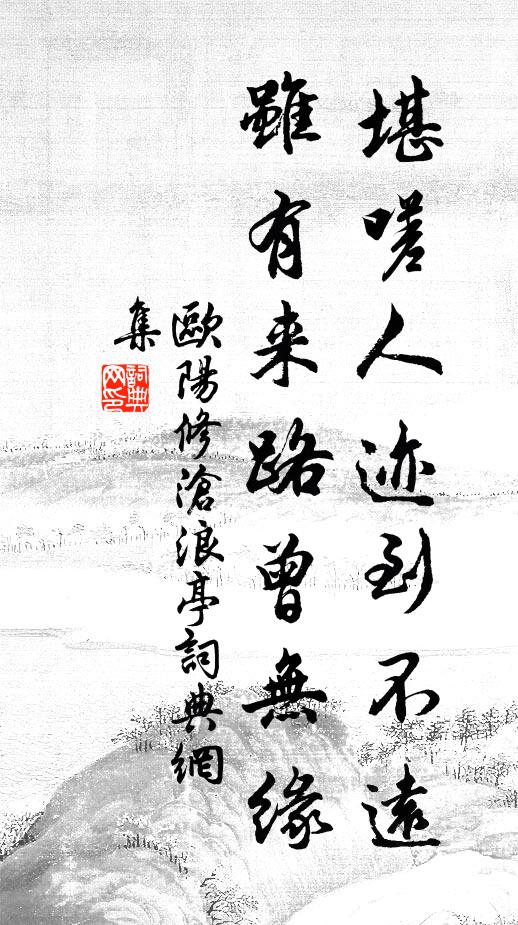 堪嗟人迹到不遠
雖有来路曾無緣
歐陽修滄浪亭詞典網
集
詞典
网印